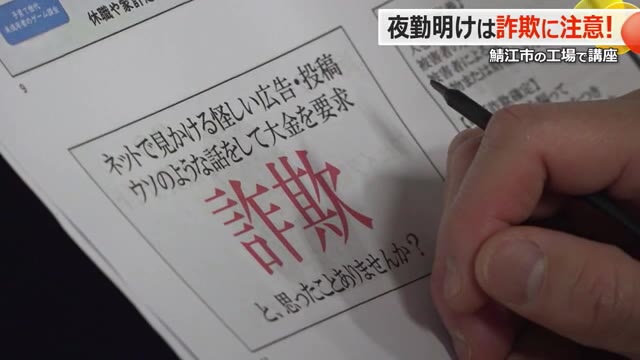 夜勤明けは詐欺に注意!
鯖江市の工場で講座
休職や家計
9
ネットで見かける怪しい広告・投稿
ウソのような話をして大金を要求
詐欺
と、思ったことありませんか?